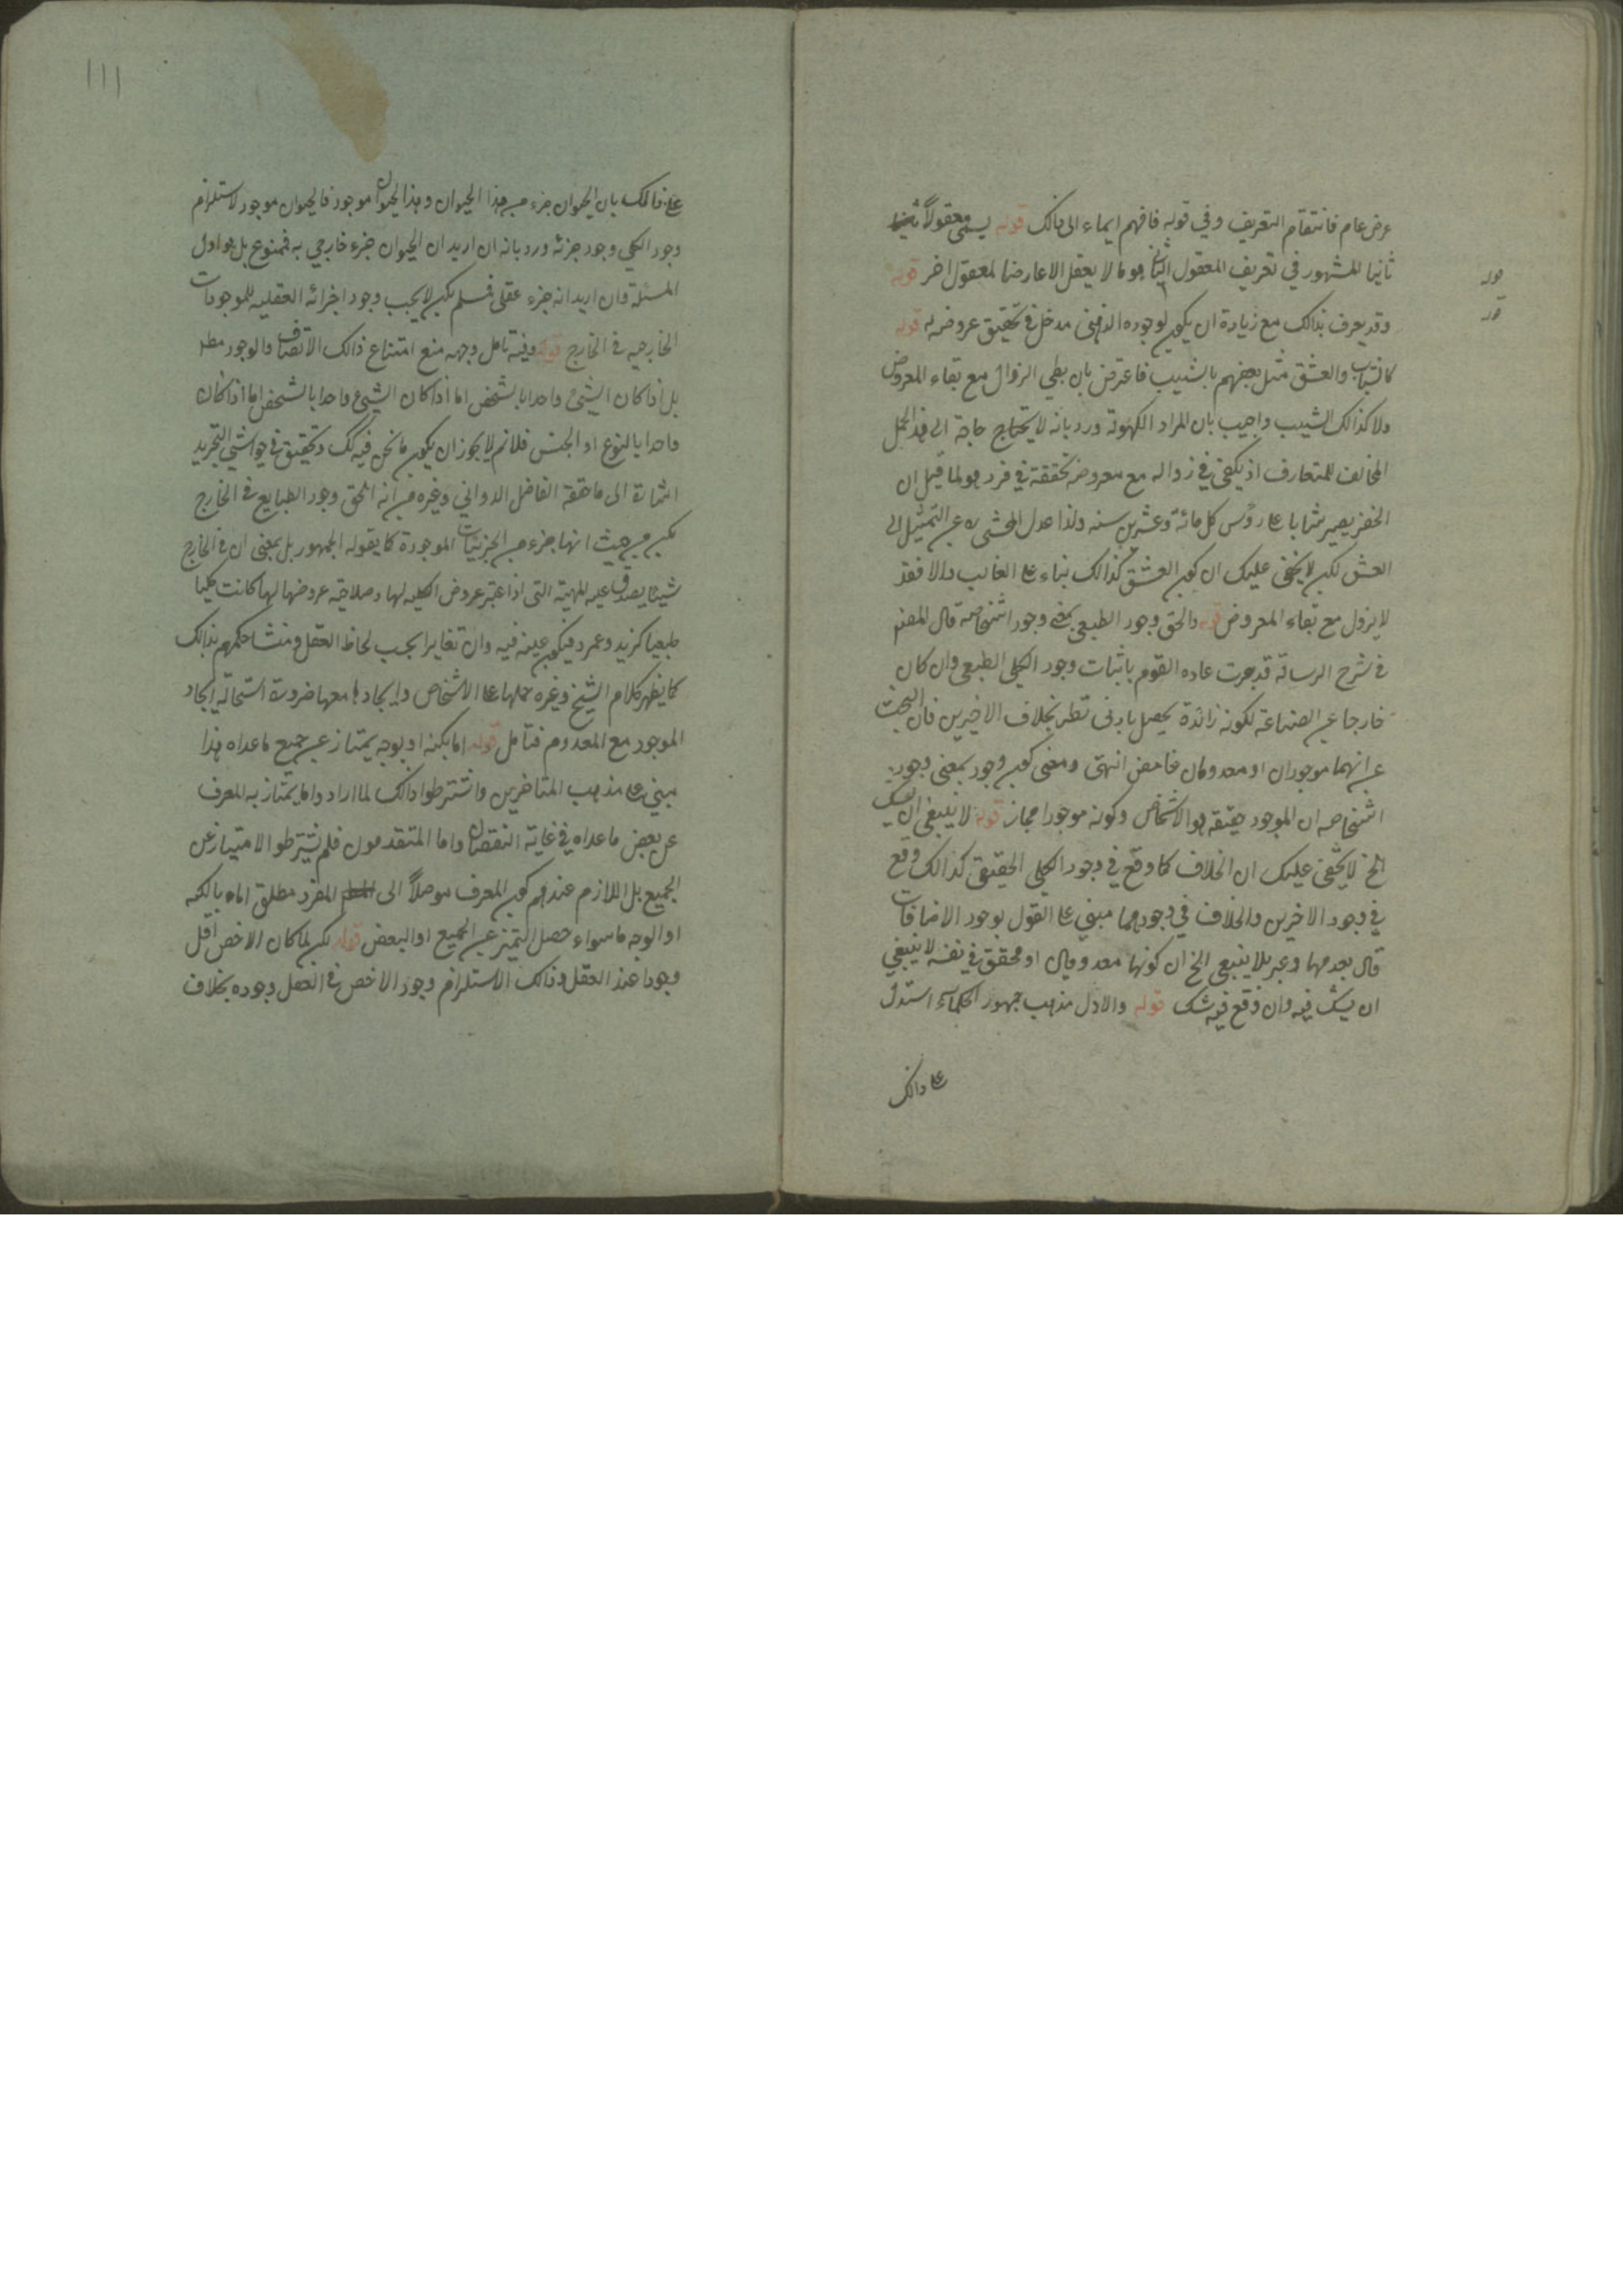 عرض عام فانتقام التعريف وفي قوله فافهم ايماء الى ذالك قوله يسمى معقولاً
ثانيا المشهور في تعريف المعقول الثاني هو ما لا يعقل الا عارضا لمعقول اخر قوله
وقد يعرف بذالك مع زيادة ان يكون لوجوده الذهني مدخل في تحقيق عروضه له قوله
كالشباب والعشق مثل بعضهم بالشيب فاعترض بان بطي الزوال مع بقاء المعروض
ولا كذالك الشيب واجيب بان المراد الكهولة ورد بانه لا يحتاج حاجة الى هذا الحمل
المخالف للمتعارف اذ يكفي في زواله مع معروضه تحققه في فرد هو لما قيل ان
الخضر يصير شابا على رؤس كل مائة وعشرين سنه ولذا عدل المحشى ره عن التمثيل الى
العشق لكن لا يخفى عليك ان كون العشق كذالك بناء على الغالب والا فقد
لا يزول مع بقاء المعروض قوله والحق وجود الطبعي بمعنى وجود اشخاصه قال المصنف
في شرح الرسالة قد جرت عاده القوم باثبات وجود الكلى الطبعي وان كان
خارجا عن الصناعة لكونه زائدة يحصل بادنى نظر بخلاف الاخيرين فان البحث
عن انهما موجودان او معدومان غامض انتهى ومعنى كون وجود بمعنى وجود
اشخاصه ان الموجود حقيقه هو الاشخاص وكونه موجودا مجاز قوله لا ينبغي ان يشك
الخ لا يخفى عليك ان الخلاف كما وقع في وجود الكلى الحقيقي كذالك وقع
في وجود الاخرين والخلاف في وجودهما مبني على القول بوجود الاضافات
قال بعدمها وعبر بلا ينبغي الخ ان كونها معدومان او محقق في نفسه لا ينبغي
ان يشك فيه وان وقع فيه شك قوله والاول مذهب جمهور الحكماء استدل
على ذالك
قوله
قوله
١١١
على ذالك بان الحيوان جزء من هذا الحيوان وهذا الحيوان موجود فالحيوان موجود لاستلزام
وجود الكلى وجود جزئه ورد بانه ان اريد ان الحيوان جزء خارجي به فممنوع بل هو اول
المسئلة وان اريد انه جزء عقلى فسلم لكن لا يجب وجود اجزائه العقليه للموجودات
الخارجيه في الخارج قوله وفيه تامل وجهه منع امتناع ذالك الاتصاف والوجود مطر
بل اذا كان الشئ واحدا بالشخص اما اذا كان الشيئ واحدا بالشخص اما اذا كان
واحدا بالنوع او الجنس فلانم لا يجوز ان يكون ما نحن فيه كك وتحقيق في حواشي التجريد
اشارة الى ما حققه الفاضل الدواني وغيره من انه الحق وجود الطبايع في الخارج
لكن من حيث انها جزء من الجزئيات الموجودة كما يقوله الجمهور بل بمعنى ان في الخارج
شيئا يصدق عليه المهية التى اذا اعتبر عروض الكليه لها وصلاحية عروضها لها كانت كليا
طبعيا كزيد وعمرو فيكون عينه فيه وان تغايرا بحسب لحاظ العقل ومنشا حكمهم بذالك
كما يظهر كلام الشيخ وغيره حملها على الاشخاص وايجادها معها ضرورة استحالة ايجاد
الموجود مع المعدوم فتامل قوله اما بكنه او بوجه يمتاز عن جميع ما عداه هذا
مبني على مذهب المتاخرين واشترطوا ذالك لما اراد واما يمتاز به المعرف
عن بعض ما عداه في غاية النقصان واما المتقدمون فلم يشترطوا الامتياز عن
الجميع بل اللازم عندهم كون المعرف موصلاً الى المفرد مطلق اماه بالكنه
او الوجه ما سواء حصل التميز عن الجميع او البعض قوله لكن لما كان الاخص اقل
وجودا عند العقل وذالك الاستلزام وجود الاخص في العقل وجوده بخلاف